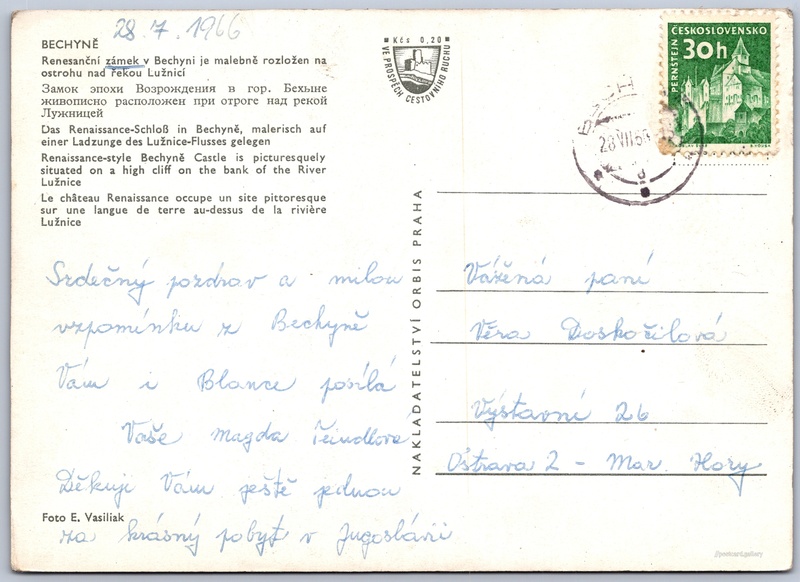 28. 7. 1966
BECHYNĚ
Renesanční zámek v Bechyni je malebně rozložen na
ostrohu nad řekou Lužnicí
Замок эпохи Возрождения в гор. Бехыне
живописно расположен при отроге над рекой
Лужницей
Das Renaissance-Schloß in Bechyně, malerisch auf
einer Ladzunge des Lužnice-Flusses gelegen
Renaissance-style Bechyně Castle is picturesquely
situated on a high cliff on the bank of the River
Lužnice
Le château Renaissance occupe un site pittoresque
sur une langue de terre au-dessus de la rivière
Lužnice
Kčs 0,20
VE PROSPĚCH CESTOVNÍHO RUCHU
ČESKOSLOVENSKO
30h
PERNŠTEJN
28 VII 66
Srdečný pozdrav a milou
vzpomínku z Bechyně
Vám i Blance posílá
Vaše Magda Feindlová
Děkuji Vám ještě jednou
za krásný pobyt v Jugoslávii
Foto E. Vasiliak
NAKLADATELSTVÍ ORBIS PRAHA
Vážená paní
Věra Doskočilová
Výstavní 26
Ostrava 2 - Mar. Hory